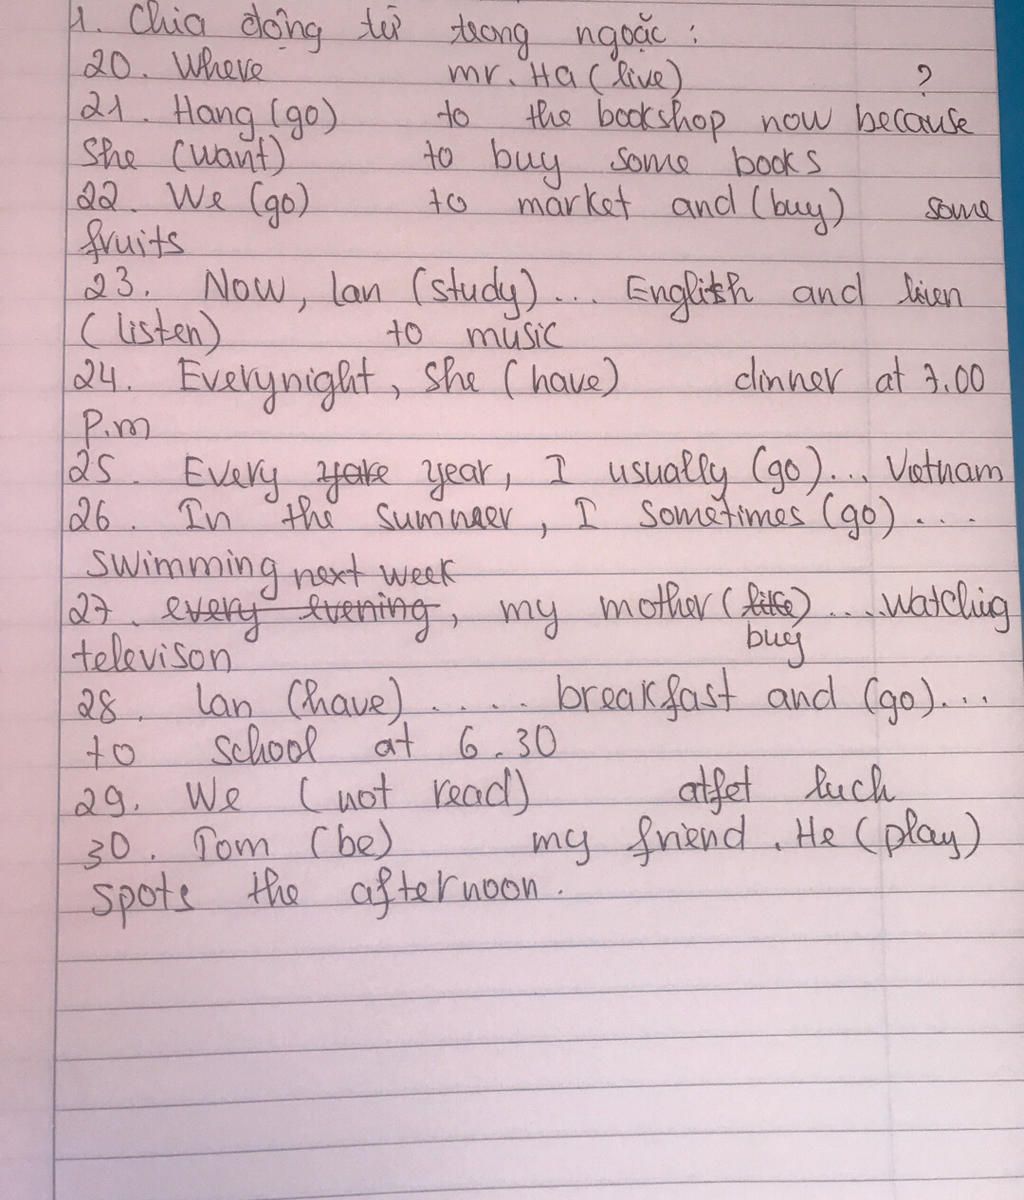 1. Chia động từ trong ngoặc :
20. Where mr. Ha (live) ?
21. Hang (go) to the bookshop now because
she (want) to buy some books
22. We (go) to market and (buy) some
fruits
23. Now, Lan (study)... English and lien
(listen) to music
24. Everynight, she (have) dinner at 7.00
P.m
25. Every year, I usually (go)... Vietnam
26. In the summer, I sometimes (go) ....
swimming next week
27. every evening, my mother (like) ...watching
buy
televison
28. Lan (have) ..... breakfast and (go)...
to school at 6.30
29. We (not read) atfet luch
30. Tom (be) my friend. He (play)
spots the afternoon.